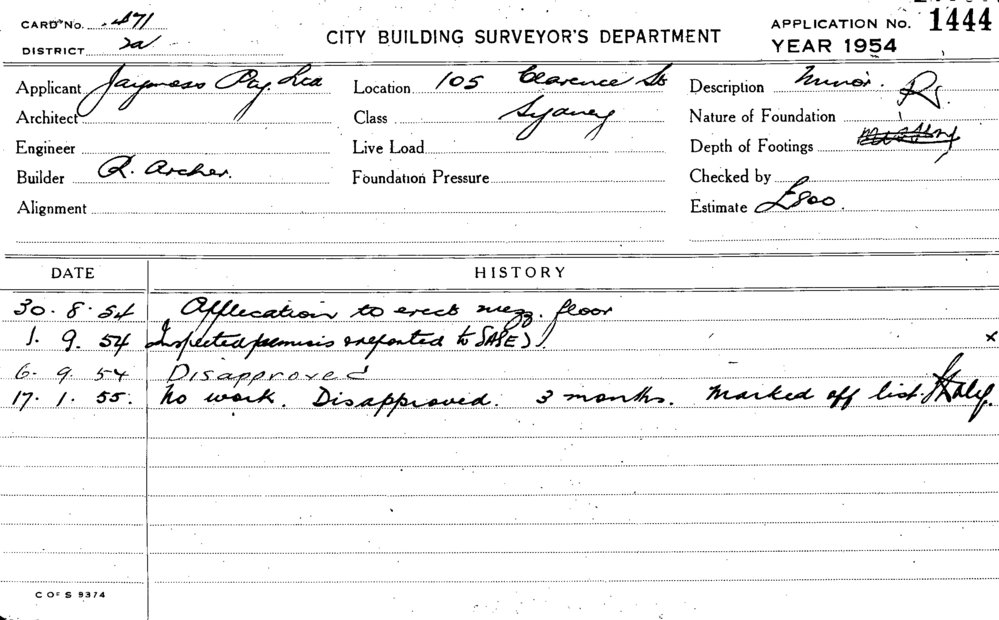 CARD No. 471
DISTRICT 2a
CITY BUILDING SURVEYOR'S DEPARTMENT
APPLICATION No. 1444
YEAR 1954
Applicant Jaymoss Pty. Ltd
Architect
Engineer
Builder R. Archer.
Alignment
Location 105 Clarence St
Class Sydney
Live Load
Foundation Pressure
Description Minor.
Nature of Foundation
Depth of Footings
Checked by
Estimate £800.
DATE HISTORY
30. 8. 54 Application to erect mezz. floor
1. 9. 54 Inspected premises & reported to x
6. 9. 54 Disapproved
17. 1. 55. No work. Disapproved. 3 months. Marked off list.
C OF S 9374